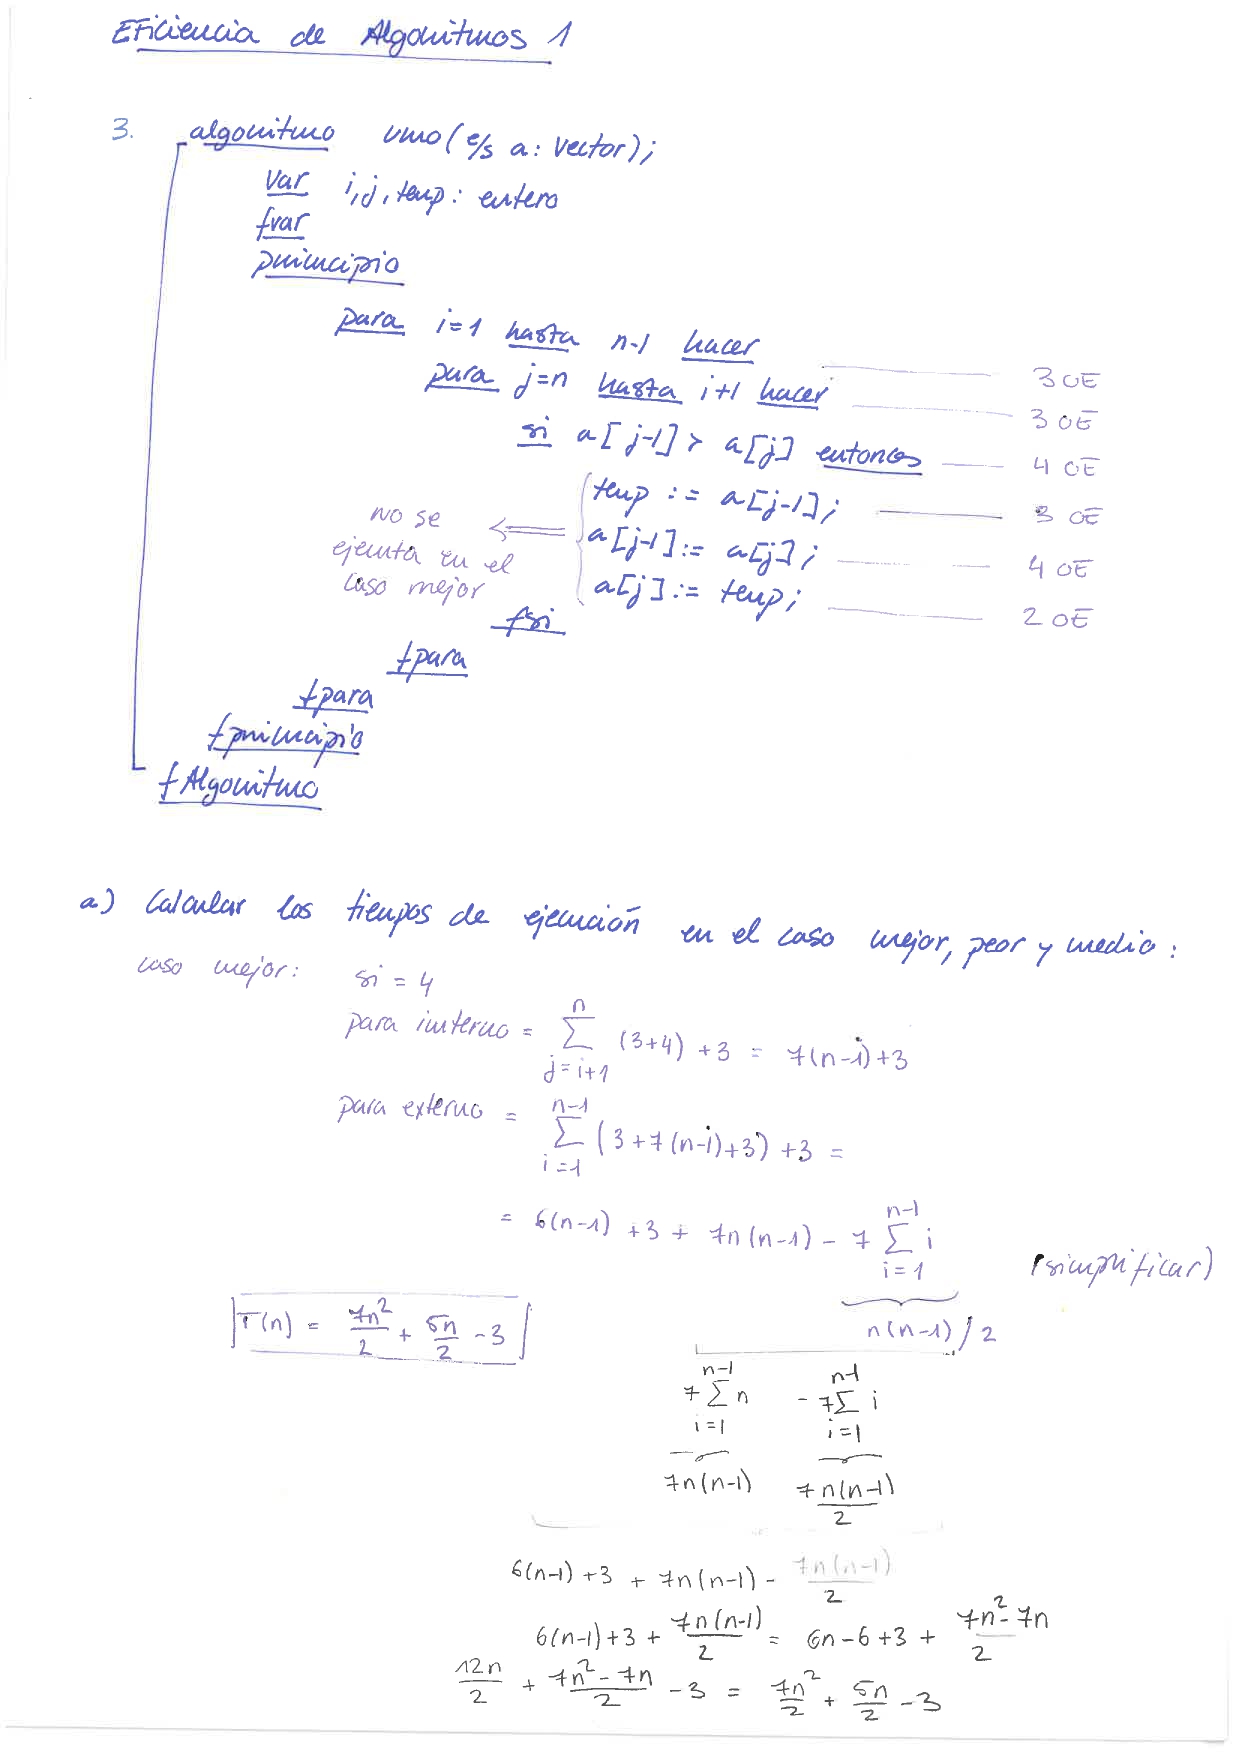 Eficiencia de Algoritmos 1
3. algoritmo uno (e/s a: vector);
var i,j, temp: entero
fvar
principio
para i=1 hasta n-1 hacer 3 OE
para j=n hasta i+1 hacer 3 OE
si a[j-1] > a[j] entonces 4 OE
temp := a[j-1]; 3 OE
a[j-1] := a[j]; 4 OE
a[j] := temp; 2 OE
no se
ejecuta en el
caso mejor
fsi
fpara
fpara
fprincipio
fAlgoritmo
a) Calcular los tiempos de ejecución en el caso mejor, peor y medio:
caso mejor: si = 4
para interno = ∑_{j=i+1}^{n} (3+4) +3 = 7(n-i)+3
para externo = ∑_{i=1}^{n-1} (3+7(n-i)+3) +3 =
= 6(n-1) +3 + 7n(n-1) - 7 ∑_{i=1}^{n-1} i (simplificar)
n(n-1)/2
T(n) = 7n²/2 + 5n/2 - 3
7 ∑_{i=1}^{n-1} n - 7 ∑_{i=1}^{n-1} i
7n(n-1) 7n(n-1)/2
6(n-1) +3 + 7n(n-1) - 7n(n-1)/2
6(n-1)+3 + 7n(n-1)/2 = 6n-6+3 + 7n²-7n/2
12n/2 + 7n²-7n/2 - 3 = 7n²/2 + 5n/2 - 3